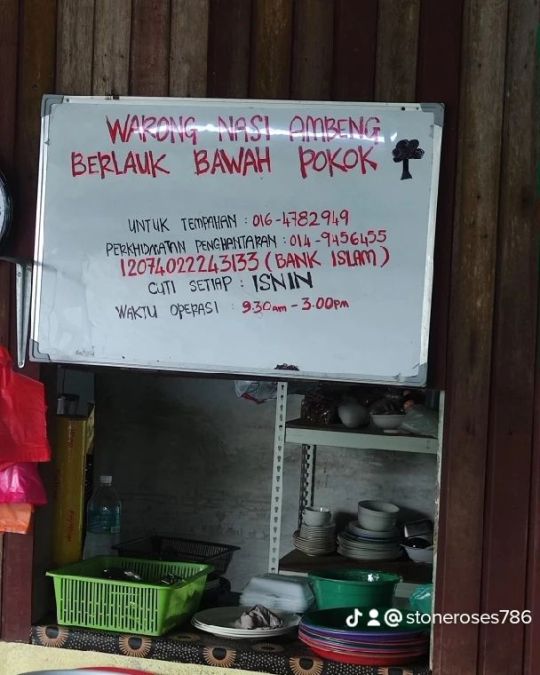 WARONG NASI AMBENG
BERLAUK BAWAH POKOK
UNTUK TEMPAHAN : 016-4782949
PERKHIDMATAN PENGHANTARAN : 014-9456455
12074022243133 (BANK ISLAM)
CUTI SETIAP : ISNIN
WAKTU OPERASI : 9.30am - 3.00pm
@stoneroses786